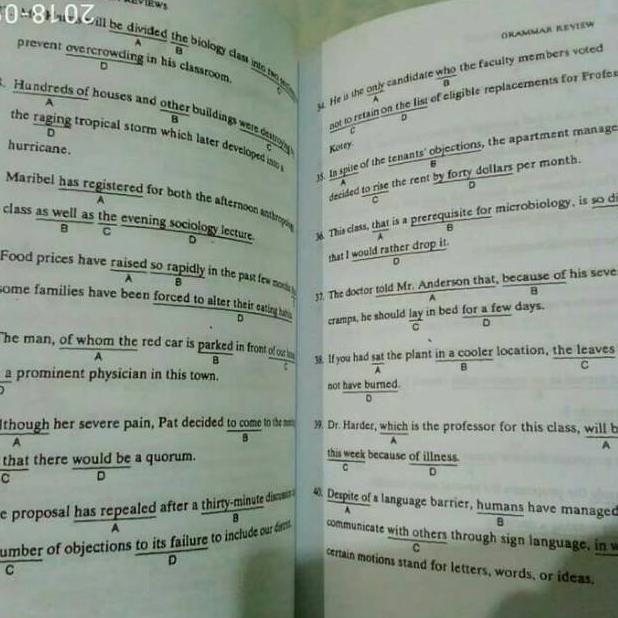 2018-0
REVIEWS
ill be divided the biology class into two
A B C
prevent overcrowding in his classroom.
D
Hundreds of houses and other buildings were destroying
A B C
the raging tropical storm which later developed into a
D
hurricane.
Maribel has registered for both the afternoon
A
class as well as the evening sociology lecture.
B C D
Food prices have raised so rapidly in the past few
A B
some families have been forced to alter their eating
D
The man, of whom the red car is parked in front of our
A B C
a prominent physician in this town.
D
lthough her severe pain, Pat decided to come to the
A B
that there would be a quorum.
C D
e proposal has repealed after a thirty-minute
A B
umber of objections to its failure to include our
C D
GRAMMAR REVIEW
34. He is the only candidate who the faculty members voted
A B
not to retain on the list of eligible replacements for
C D
Kotey.
35. In spite of the tenants' objections, the apartment
A B
decided to rise the rent by forty dollars per month.
C D
36. This class, that is a prerequisite for microbiology, is so
A B
that I would rather drop it.
D
37. The doctor told Mr. Anderson that, because of his
A B
cramps, he should lay in bed for a few days.
C D
38. If you had sat the plant in a cooler location, the leaves
A B C
not have burned.
D
39. Dr. Harder, which is the professor for this class, will
A A
this week because of illness.
C D
40. Despite of a language barrier, humans have managed
A B
communicate with others through sign language, in
C
certain motions stand for letters, words, or ideas.